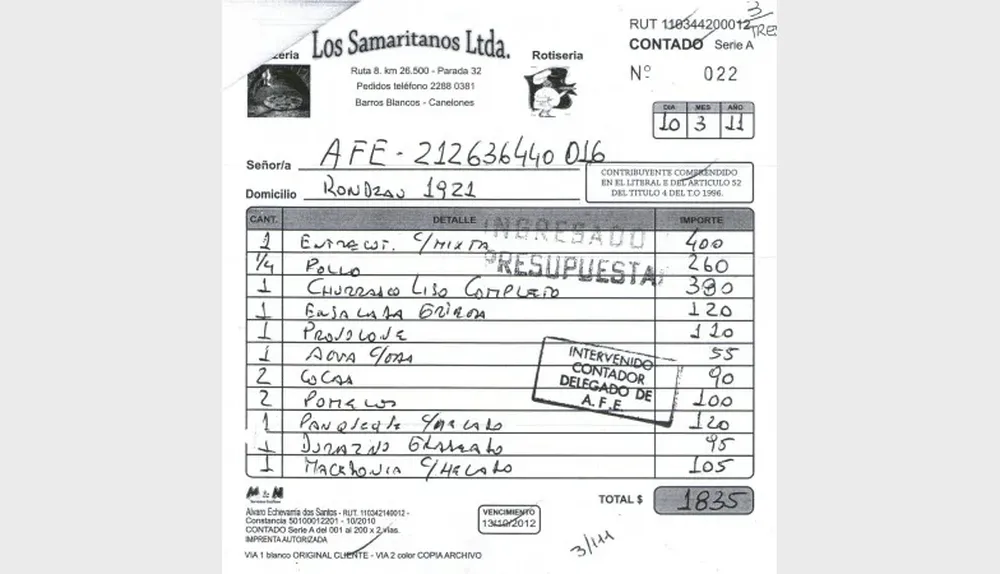 3/
TRES
zeria
Los Samaritanos Ltda.
Rotiseria
RUT 110344200012
CONTADO Serie A
Ruta 8. km 26.500 - Parada 32
Pedidos teléfono 2288 0381
Barros Blancos - Canelones
Nº 022
DIA MES AÑO
10 3 11
Señor/a AFE - 212636440 016
Domicilio RONDEAU 1921
CONTRIBUYENTE COMPRENDIDO
EN EL LITERAL E DEL ARTICULO 52
DEL TITULO 4 DEL T.O 1996.
CANT. DETALLE IMPORTE
INGRESADO
PRESUPUESTA
1 ENTRECOT. C/MIXTA 400
1/4 POLLO 260
1 CHURRASCO LISO COMPLETO 380
1 ENSALADA GRIEGA 120
1 PROVOLONE 110
1 AGUA C/GAS 55
2 COCAS 90
2 POMELOS 100
1 PANQUEQUE C/HELADO 120
1 DURAZNO GLASEADO 95
1 MACEDONIA C/HELADO 105
INTERVENIDO
CONTADOR
DELEGADO DE
A.F.E.
TOTAL $ 1835
M & M
Alvaro Echevarria dos Santos - RUT. 110342140012 -
Constancia 50100012201 - 10/2010
CONTADO Serie A del 001 al 200 x 2 vias.
IMPRENTA AUTORIZADA
VENCIMIENTO
13/10/2012
3/111
VIA 1 blanco ORIGINAL CLIENTE - VIA 2 color COPIA ARCHIVO